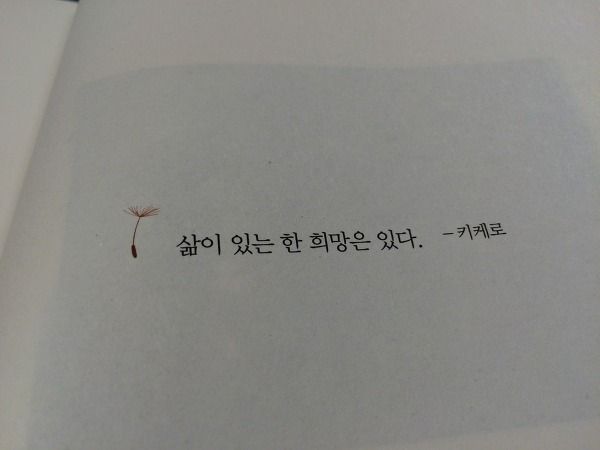 삶이 있는 한 희망은 있다. -키케로